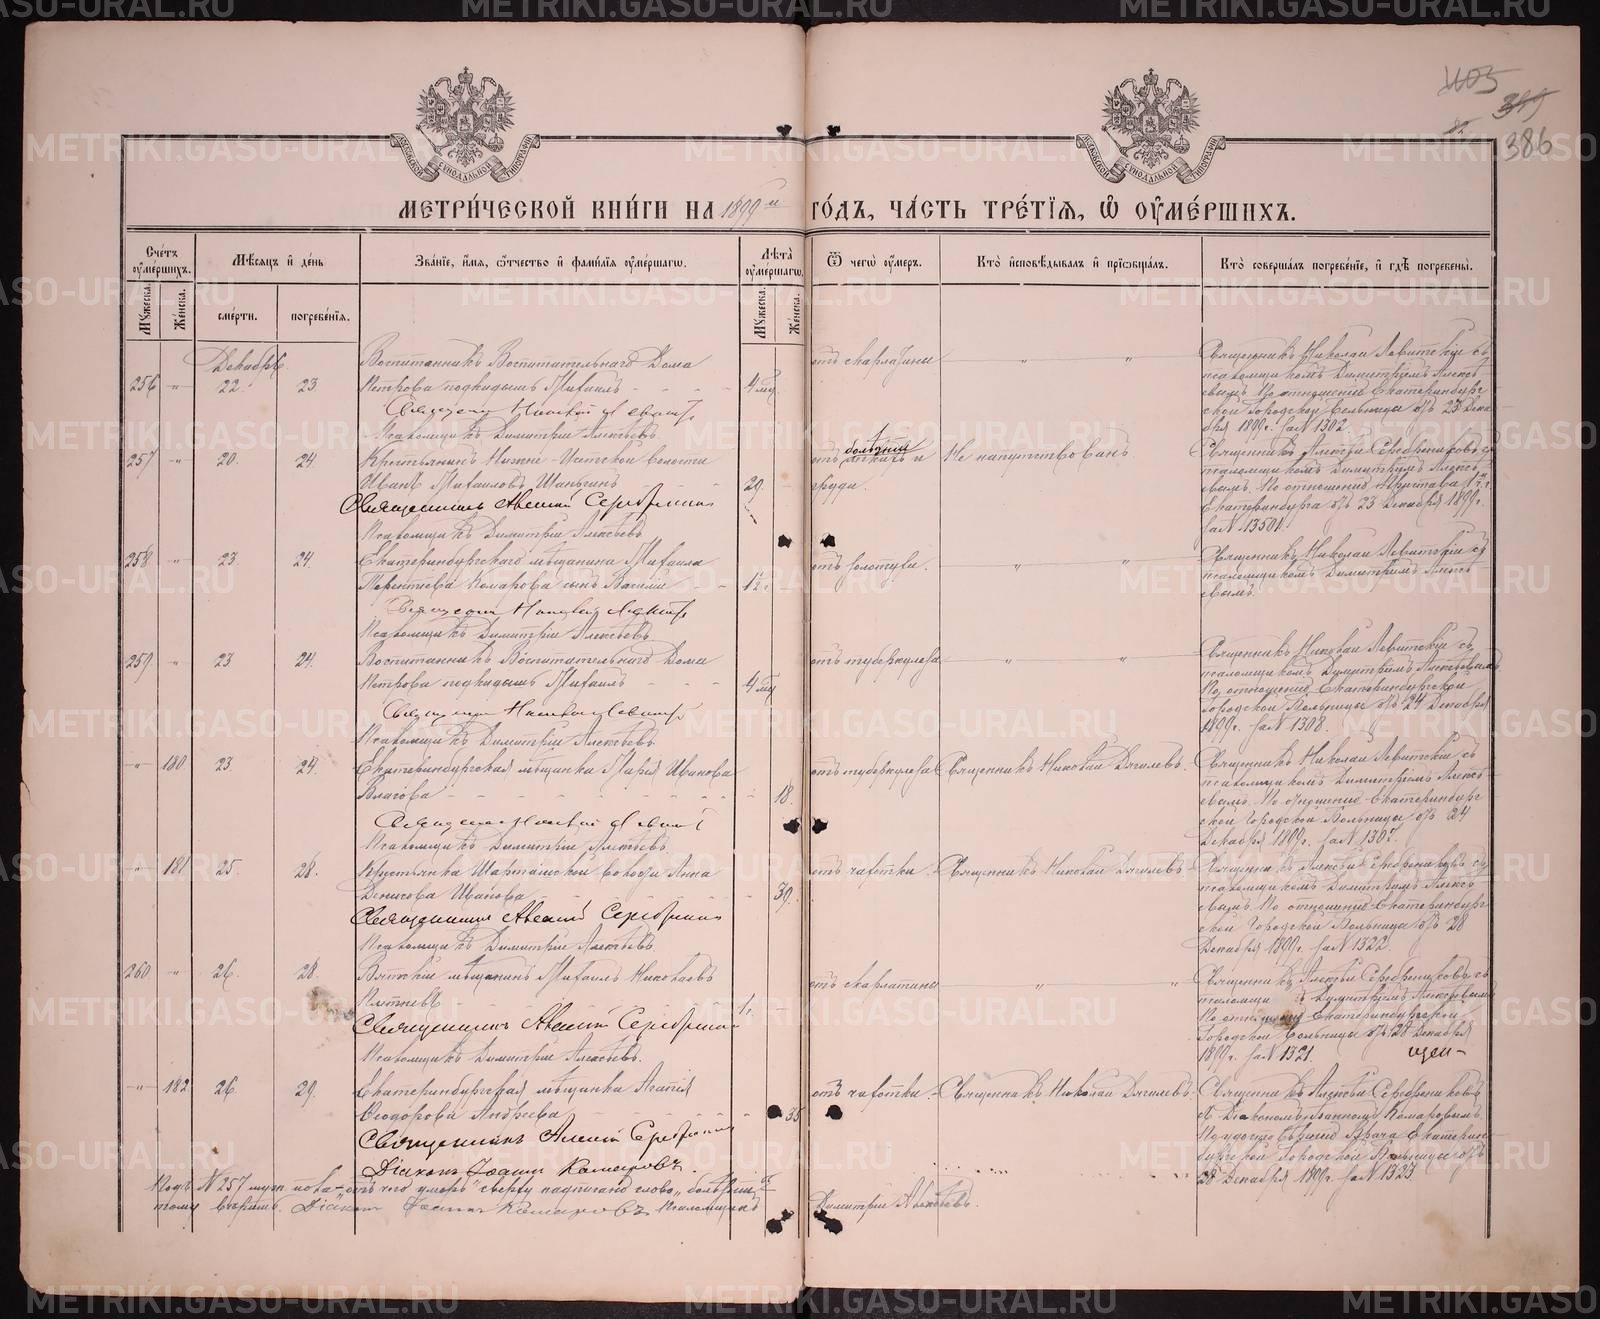 405
399
82
386
МОСКОВСКОЙ СѴНОДАЛЬНОЙ ТИПОГРАФІИ
МОСКОВСКОЙ СѴНОДАЛЬНОЙ ТИПОГРАФІИ
МЕТРИ́ЧЕСКОЙ КНИ́ГИ НА 1899й ГО́ДЪ, ЧА́СТЬ ТРЕ́ТІЯ, Ѡ ОУ҆МЕ́РШИХЪ.
Сче́тъ оу҆ме́ршихъ. Мѣ́сяцъ и҆ де́нь Зва́ніе, и҆́мя, ѻ҆́тчество и҆ фами́лія оу҆ме́ршагѡ. Лѣ́та оу҆ме́ршагѡ. Ѿ чегѡ̀ оу҆́меръ. Кто̀ и҆сповѣ́дывалъ и҆ прїѡбща́лъ. Кто̀ соверша́лъ погребе́ніе, и҆ гдѣ̀ погребены̀.
Мꙋ́жеска. Же́нска. сме́рти. погребе́нїя. Мꙋ́жеска. Же́нска.
Декабрь
256 „ 22. 23 Воспитанникъ Воспитательнаго Дома
Петрова подкидышъ Михаилъ 4 мц.
Священникъ Николай Левитскій
Псаломщикъ Димитрій Алексѣевъ
отъ скарлатины „ „
Священникъ Николай Левитскій съ
псаломщикомъ Димитріемъ Алексѣ
евымъ. По отношенію Екатеринбург
ской Городской Больницы отъ 23 Дека
бря 1899 г. за N 1302.
257 „ 20. 24. Крестьянинъ Нижне-Исетской волости
Иванъ Михаиловъ Шаньгинъ 29.
Священникъ Алексій Серебренниковъ
Псаломщикъ Димитрій Алексѣевъ
отъ болѣзни легкихъ и
груди.
Не напутствованъ
Священникъ Алексій Серебренниковъ съ
псаломщикомъ Димитріемъ Алексѣ
евымъ. По отношенію Пристава 1й ч. г.
Екатеринбурга отъ 23 Декабря 1899 г.
за N 13501.
258 „ 23. 24. Екатеринбургскаго мѣщанина Михаила
Комарова сынъ Василій 1½ г.
Священникъ Николай Левитскій
Псаломщикъ Димитрій Алексѣевъ
отъ золотухи. „ „
Священникъ Николай Левитскій съ
псаломщикомъ Димитріемъ Алексѣ
евымъ.
259 „ 23 24. Воспитанникъ Воспитательнаго Дома
Петрова подкидышъ Михаилъ 4 мц
Священникъ Николай Левитскій
Псаломщикъ Димитрій Алексѣевъ
отъ туберкулеза „ „
Священникъ Николай Левитскій съ
псаломщикомъ Димитріемъ Алексѣевымъ
По отношенію Екатеринбургской
Городской Больницы отъ 24 Декабря
1899 г. за N 1308.
„ 180 23. 24. Екатеринбургская мѣщанка Марія Иванова
Власова 18.
Священникъ Николай Левитскій
Псаломщикъ Димитрій Алексѣевъ
отъ туберкулеза Священникъ Николай Дягилевъ.
Священникъ Николай Левитскій съ
псаломщикомъ Димитріемъ Алексѣ
евымъ. По отношенію Екатеринбург
ской Городской Больницы отъ 24
Декабря 1899 г. за N 1307.
„ 181 25. 28. Крестьянка Шарташской волости Анна
Денисова Иванова 39.
Священникъ Алексій Серебренниковъ
Псаломщикъ Димитрій Алексѣевъ
отъ чахотки. Священникъ Николай Дягилевъ
Священникъ Алексій Серебренниковъ съ
псаломщикомъ Димитріемъ Алексѣ
евымъ. По отношенію Екатеринбург
ской Городской Больницы отъ 28
Декабря 1899 г. за N 1322.
260 „ 26. 28. Вятскій мѣщанинъ Михаилъ Николаевъ
1 г.
Священникъ Алексій Серебренниковъ
Псаломщикъ Димитрій Алексѣевъ.
отъ скарлатины „ „
Священникъ Алексій Серебренниковъ съ
псаломщи Димитріемъ Алексѣевымъ
По отношенію Екатеринбургской
Городской Больницы отъ 28 Декабря
1899 г. за N 1321.
„ 182 26. 29. Екатеринбургская мѣщанка Агапія
Ѳеодорова Андреева 35
Священникъ Алексій Серебренниковъ
Діаконъ Іоаннъ Комаровъ.
отъ чахотки. Священникъ Николай Дягилевъ.
Священникъ Алексій Серебренниковъ
съ Діакономъ Іоанномъ Комаровымъ.
По удостовѣренію Врача Екатерин
бургской Городской Больницы отъ
28 Декабря 1899 г. за N 1323.
Подъ N 257 муж. пола „отъ чего умеръ“ сверху надписано слово „болѣзни“
тому вѣримъ. Діаконъ Іоаннъ Комаровъ. Псаломщикъ Димитрій Алексѣевъ.
METRIKI.GASO-URAL.RU